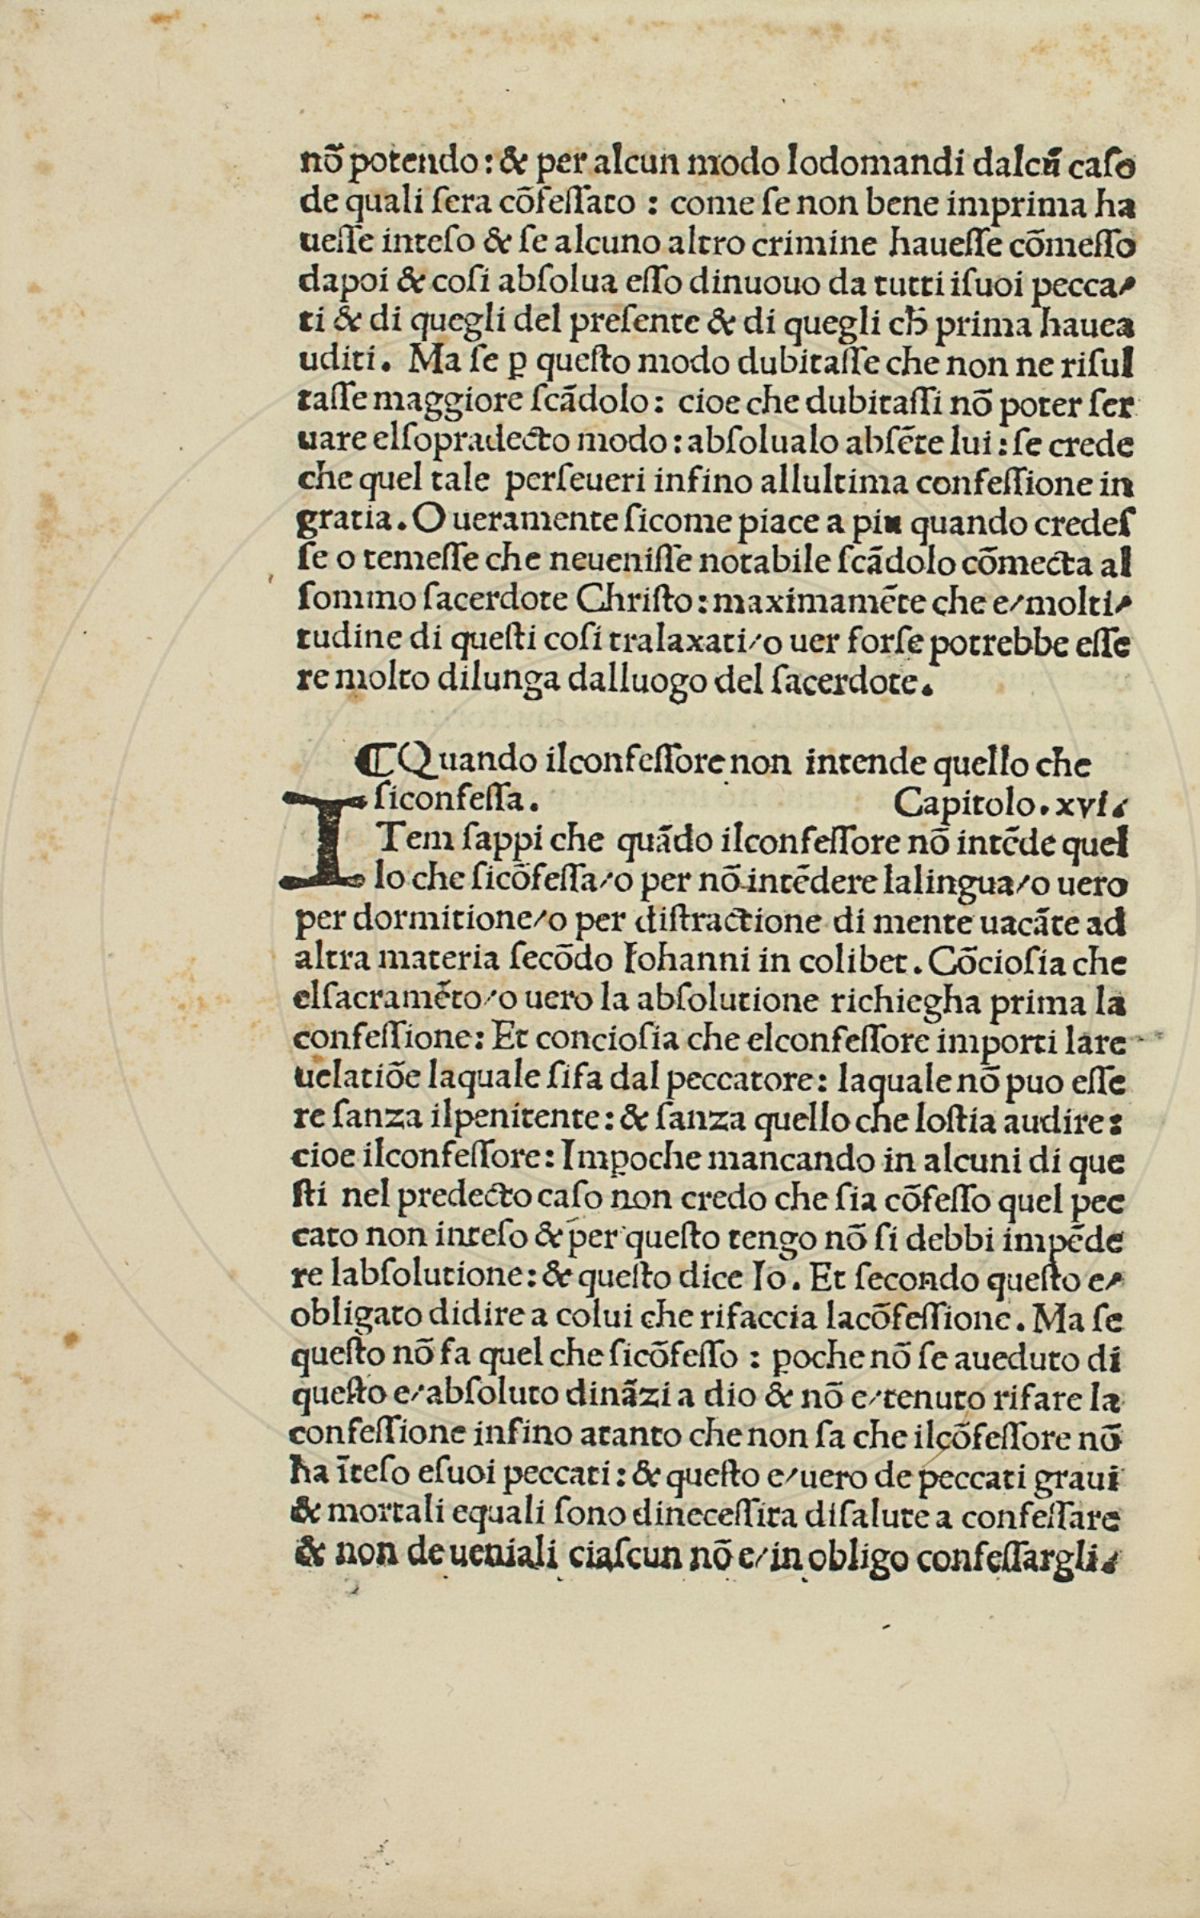 nō potendo: & per alcun modo lodomandi dalcū caſo
de quali ſera cōfeſſato : come ſe non bene imprima ha
ueſſe inteſo & ſe alcuno altro crimine haueſſe cōmeſſo
dapoi & coſi abſolua eſſo dinuouo da tutti iſuoi pecca⸗
ti & di quegli del preſente & di quegli cħ prima hauea
uditi. Ma ſe ꝑ queſto modo dubitaſſe che non ne riſul
taſſe maggiore ſcādolo: cioe che dubitaſſi nō poter ſer
uare elſopradecto modo: abſolualo abſēte lui: ſe crede
che quel tale perſeueri infino allultima confeſſione in
gratia. O ueramente ſicome piace a piu quando credeſ
ſe o temeſſe che neueniſſe notabile ſcādolo cōmecta al
ſommo ſacerdote Chriſto: maximamēte che e/molti⸗
tudine di queſti coſi tralaxati/o uer forſe potrebbe eſſe
re molto dilunga dalluogo del ſacerdote.
¶Quando ilconfeſſore non intende quello che
ſiconfeſſa. Capitolo. xvi.
ITem ſappi che quādo ilconfeſſore nō intēde quel
lo che ſicōfeſſa/o per nō intēdere lalingua/o uero
per dormitione/o per diſtractione di mente uacāte ad
altra materia ſecōdo Iohanni in colibet. Cōcioſia che
elſacramēto/o uero la abſolutione richiegha prima la
confeſſione: Et concioſia che elconfeſſore importi lare
uelatiōe laquale ſifa dal peccatore: laquale nō puo eſſe
re ſanza ilpenitente: & ſanza quello che loſtia audire:
cioe ilconfeſſore: Imꝑoche mancando in alcuni di que
ſti nel predecto caſo non credo che ſia cōfeſſo quel pec
cato non inteſo & per queſto tengo nō ſi debbi impēde
re labſolutione: & queſto dice Io. Et ſecondo queſto e/
obligato didire a colui che rifaccia lacōfeſſione. Ma ſe
queſto nō fa quel che ſicōfeſſo : ꝑoche nō ſe aueduto di
queſto e/abſoluto dināzi a dio & nō e/tenuto rifare la
confeſſione infino atanto che non ſa che ilcōfeſſore nō
ha īteſo eſuoi peccati: & queſto e/uero de peccati graui
& mortali equali ſono dineceſſita diſalute a confeſſare
& non de ueniali ciaſcun nō e/in obligo confeſſargli.